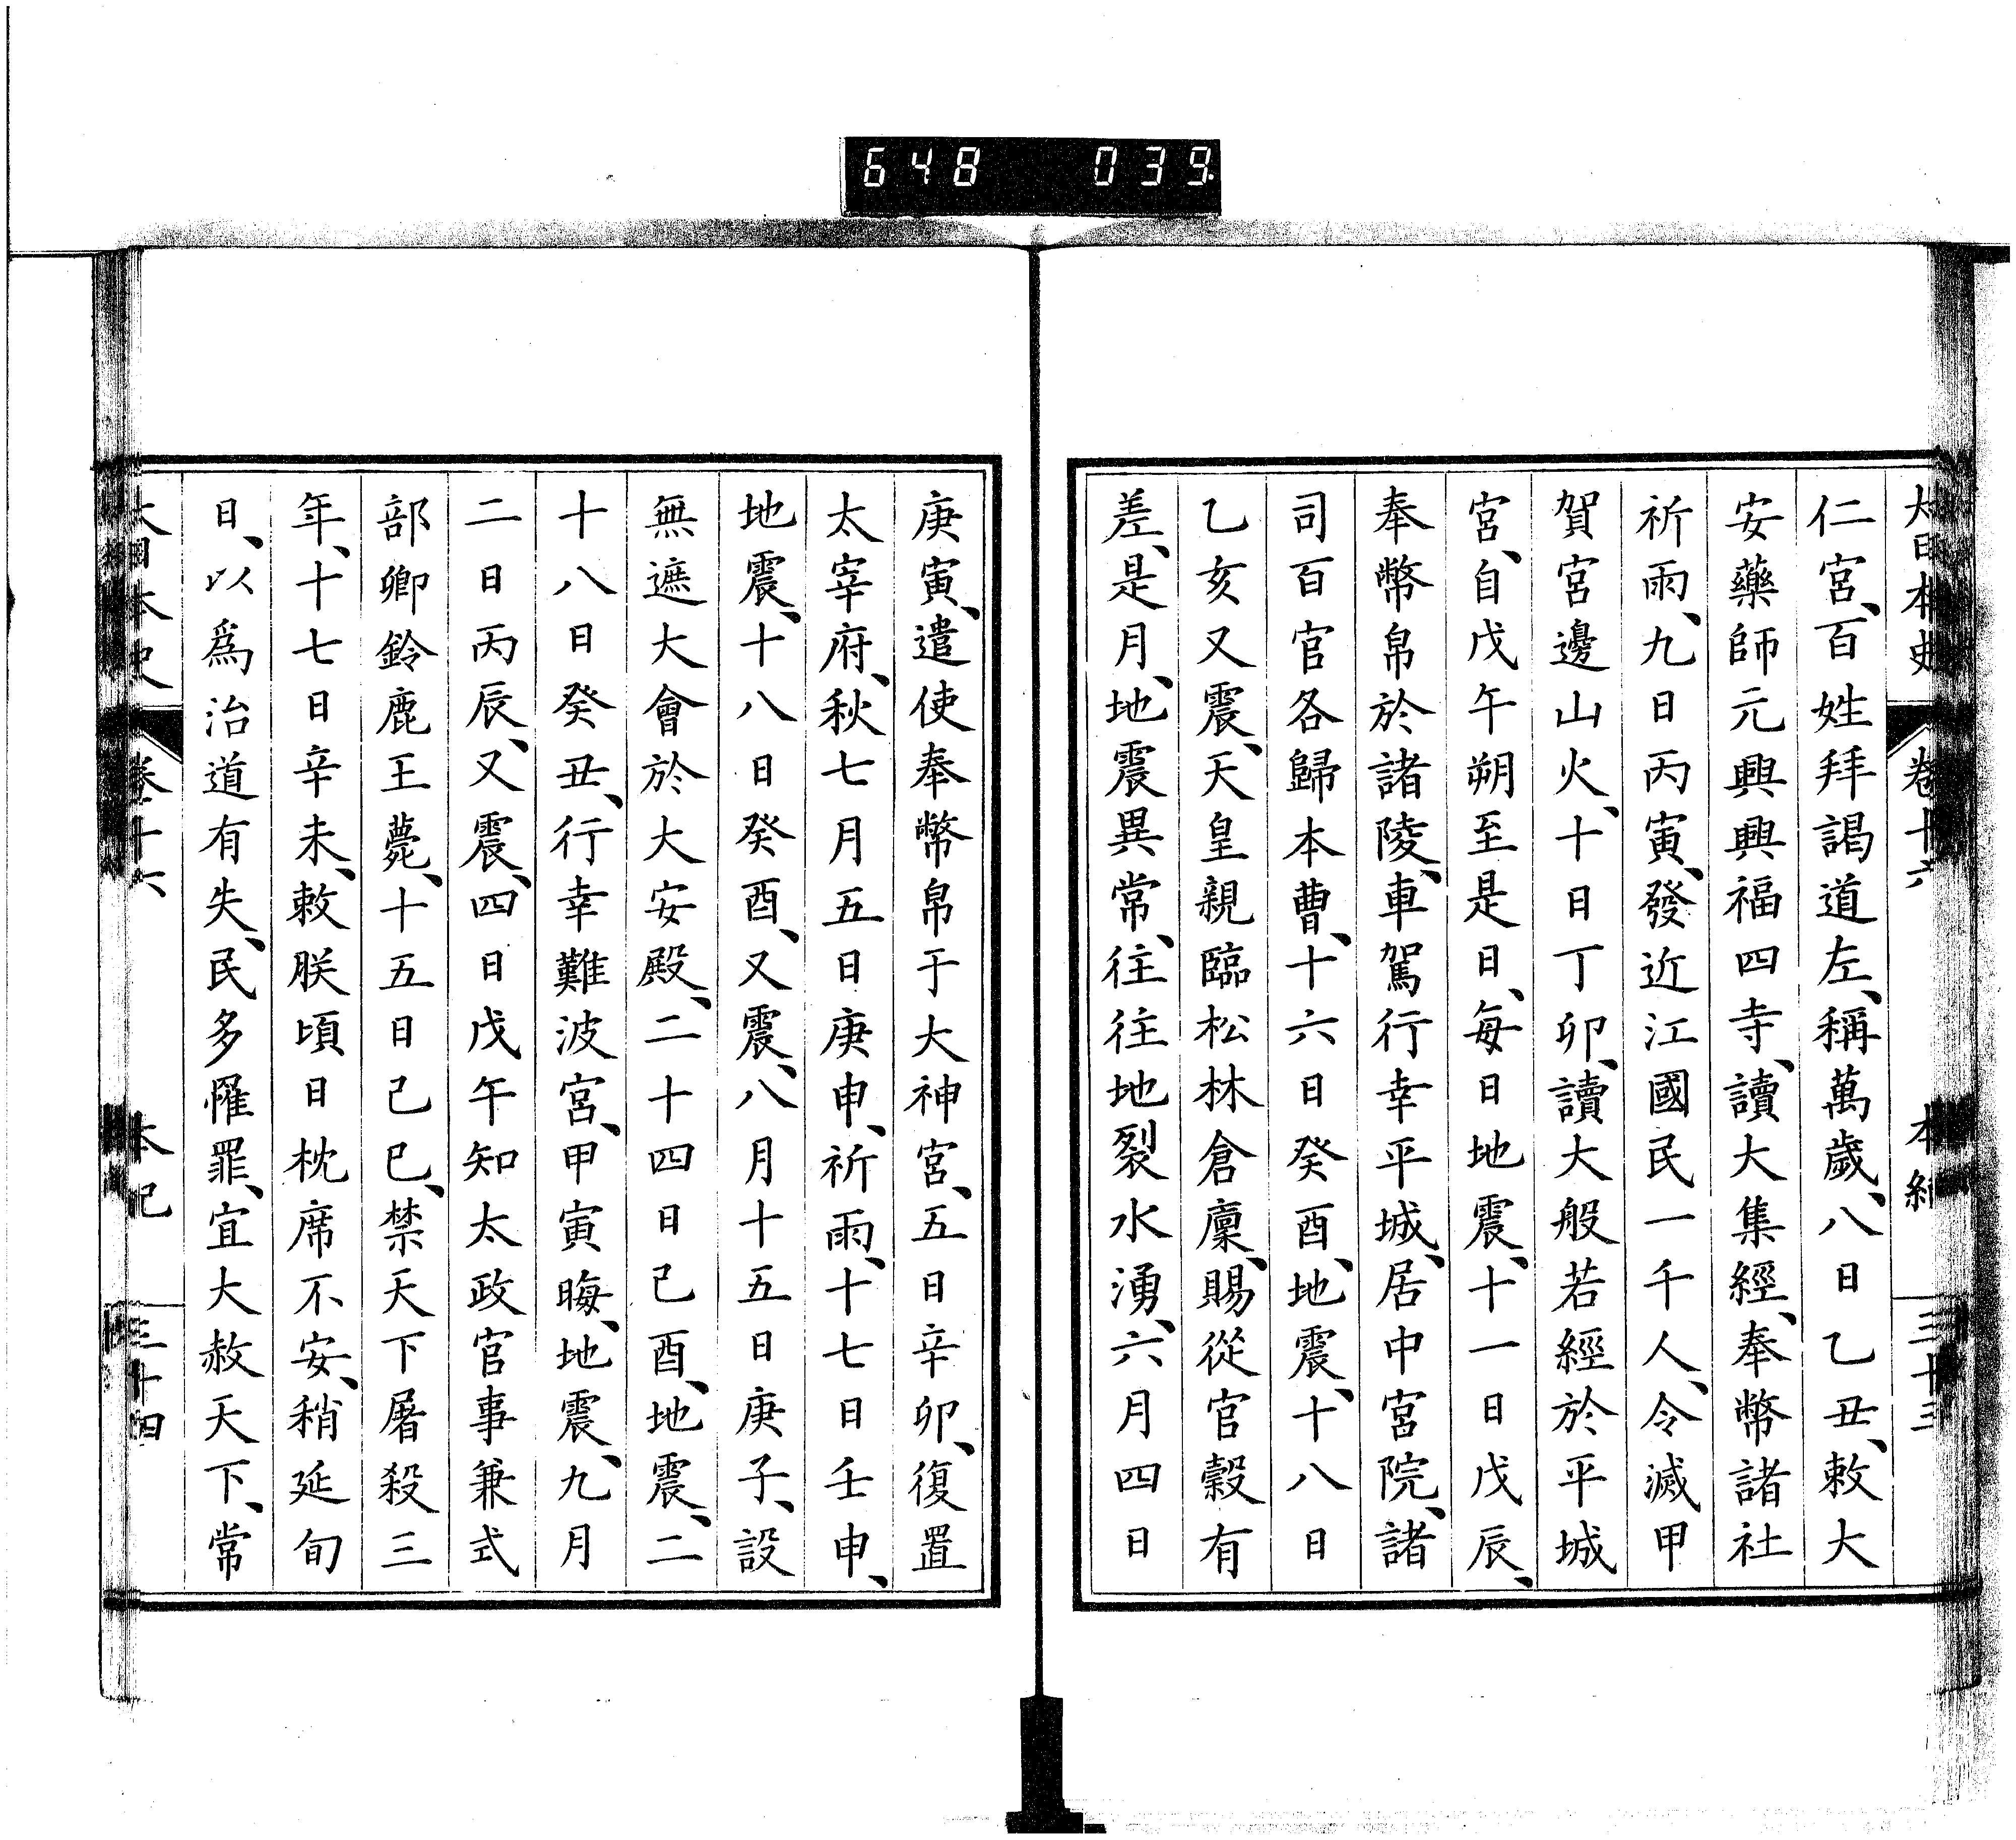 648 039
大日本史 卷十六 本紀 三十三
仁宮、百姓拜謁道左、稱萬歲、八日乙丑、敕大
安藥師元興興福四寺、讀大集經、奉幣諸社
祈雨、九日丙寅、發近江國民一千人、令滅甲
賀宮邊山火、十日丁卯、讀大般若經於平城
宮、自戊午朔至是日、每日地震、十一日戊辰、
奉幣帛於諸陵、車駕行幸平城、居中宮院、諸
司百官各歸本曹、十六日癸酉、地震、十八日
乙亥又震、天皇親臨松林倉廩、賜從官穀有
差、是月、地震異常、往往地裂水湧、六月四日
庚寅、遣使奉幣帛于大神宮、五日辛卯、復置
太宰府、秋七月五日庚申、祈雨、十七日壬申、
地震、十八日癸酉、又震、八月十五日庚子、設
無遮大會於大安殿、二十四日己酉、地震、二
十八日癸丑、行幸難波宮、甲寅晦、地震、九月
二日丙辰、又震、四日戊午知太政官事兼式
部卿鈴鹿王薨、十五日己巳、禁天下屠殺三
年、十七日辛未、敕朕頃日枕席不安、稍延旬
日、以爲治道有失、民多罹罪、宜大赦天下、常
大日本史 卷十六 本紀 三十四